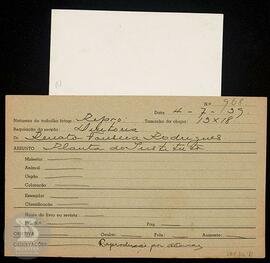 Nº 968
Data 4-7-39
Natureza do trabalho fotogr. Repro. Tamanho da chapa 13x18
Requisição da secção: Diretoria
Dr. Renato Fonseca Rodrigues
ASSUNTO Planta do Instituto
Moléstia:
Animal
Órgão
Coloração
Exemplar
Classificação
Nome do livro ou revista:
Pag.
Ocular: Foli: Aumento:
Reprodução por